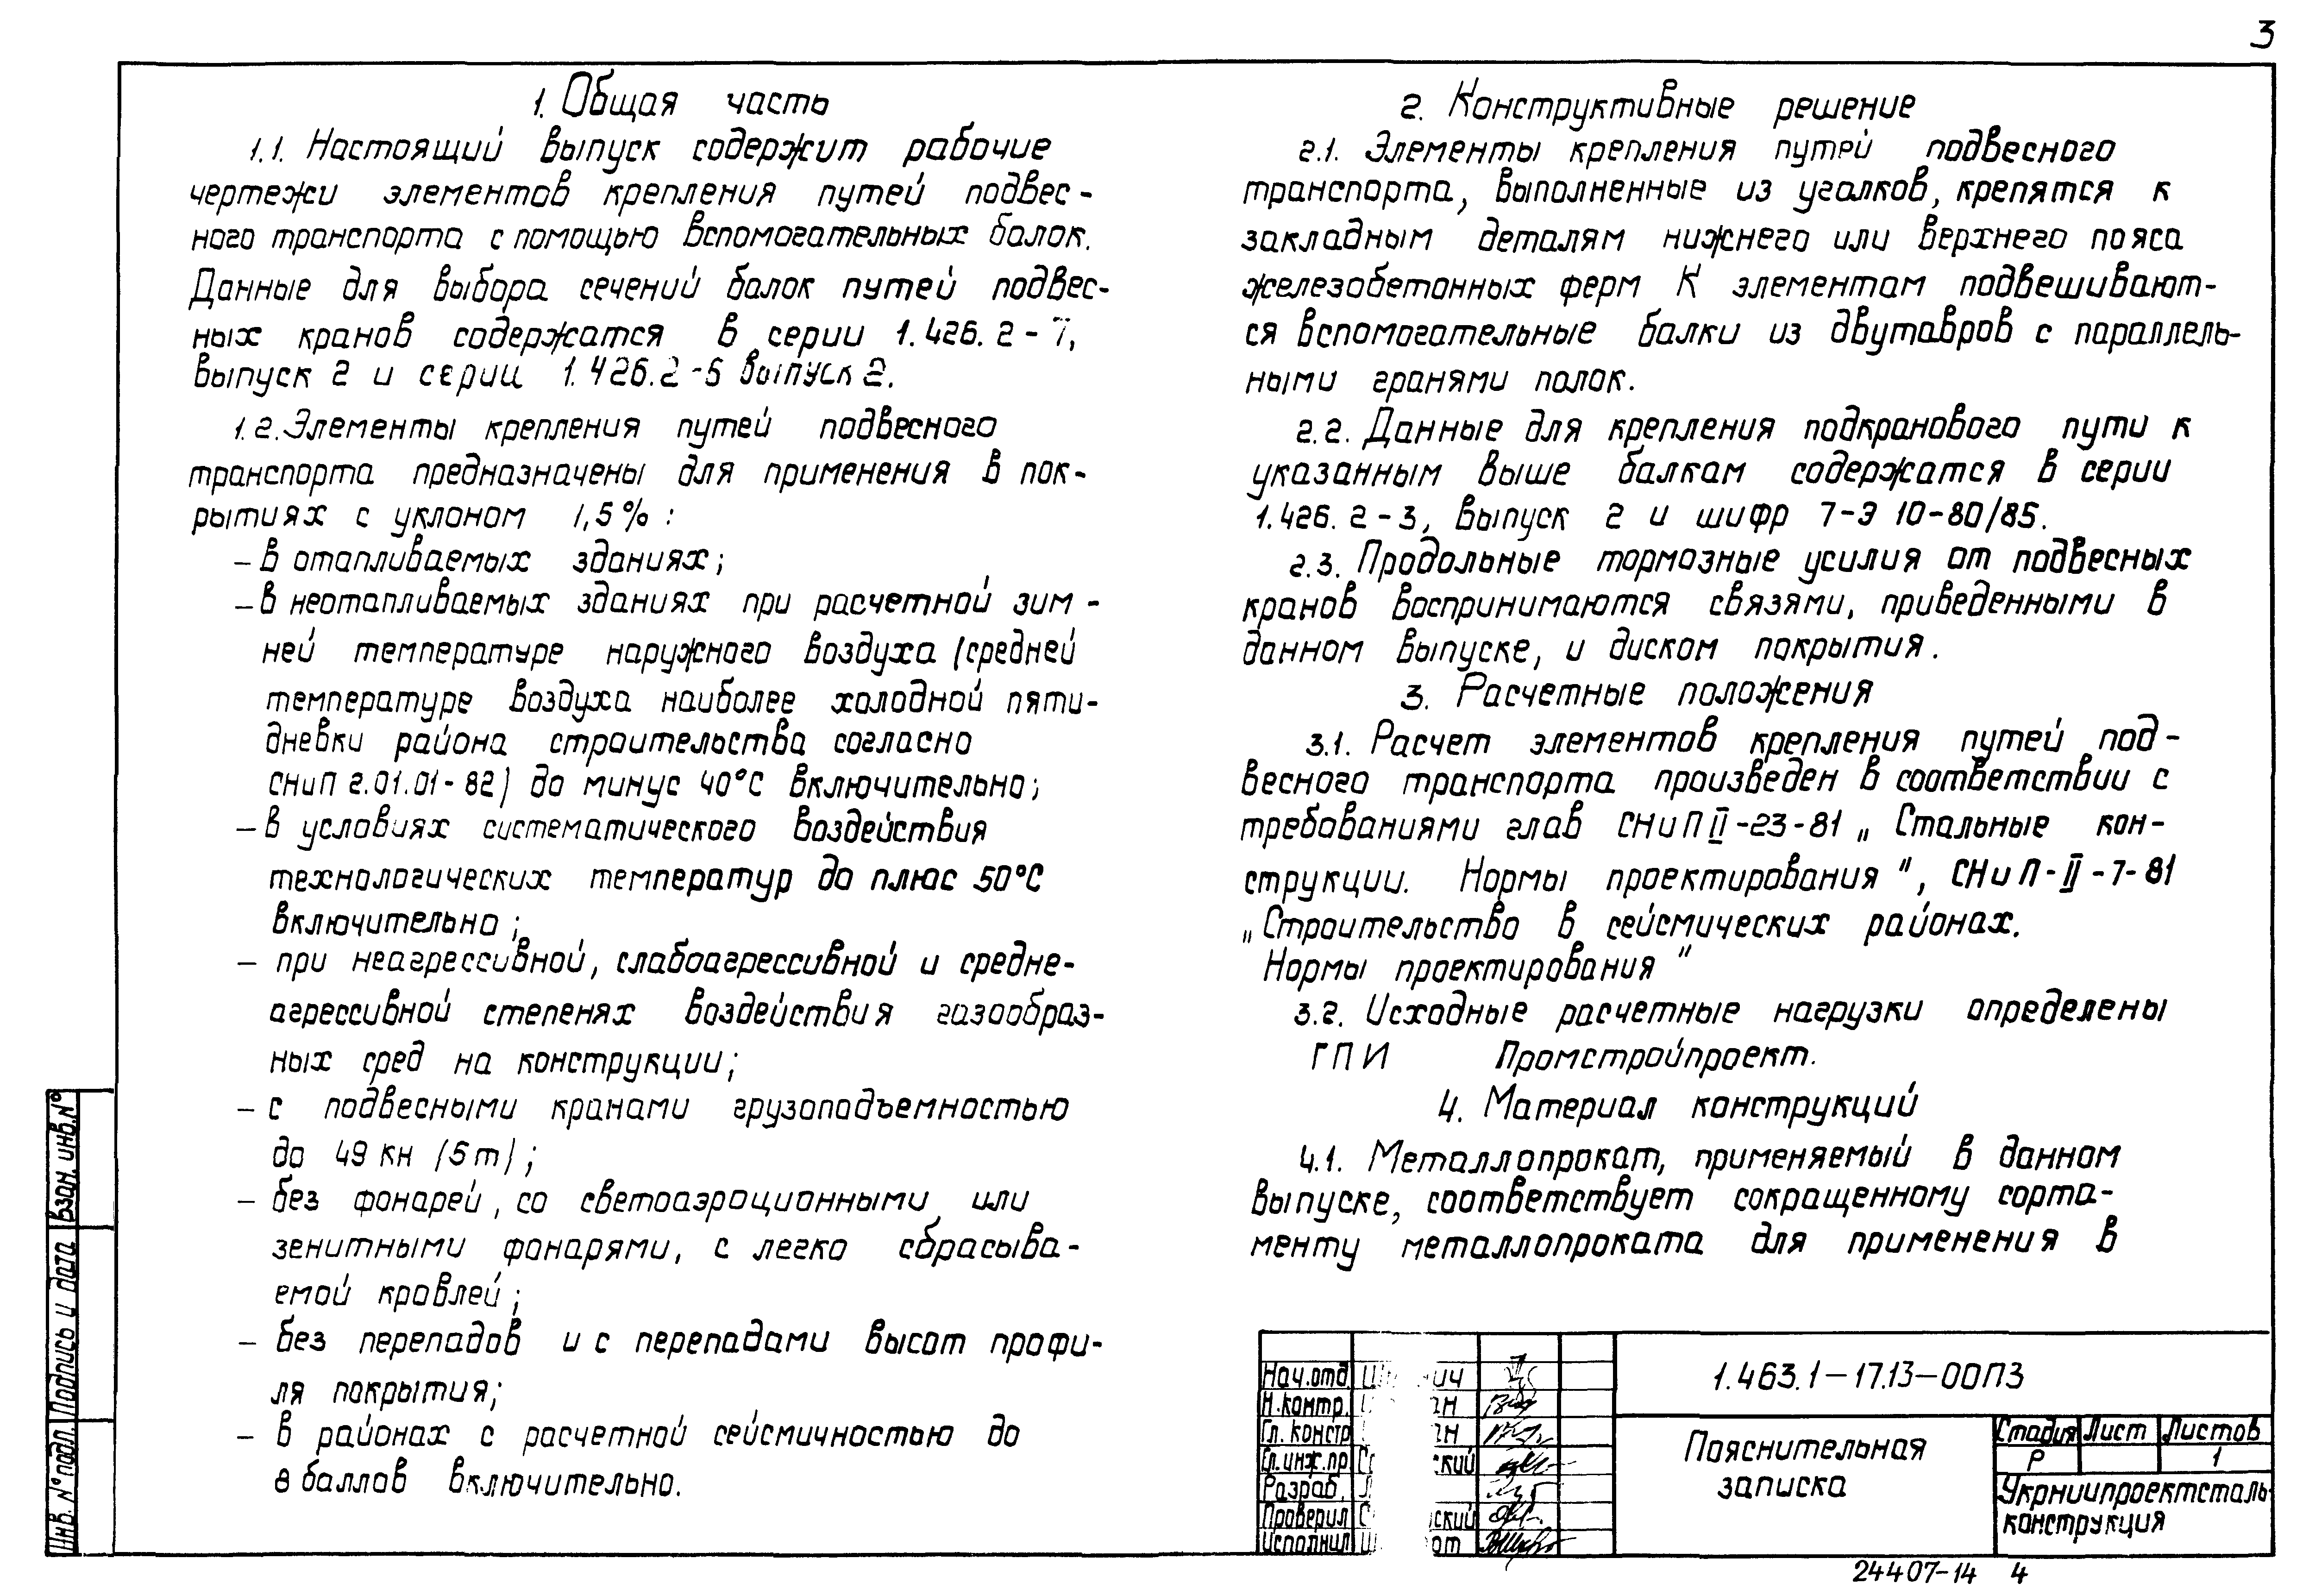 3
1. Общая часть
1.1. Настоящий выпуск содержит рабочие
чертежи элементов крепления путей подвес-
ного транспорта с помощью вспомогательных балок.
Данные для выбора сечений балок путей подвес-
ных кранов содержатся в серии 1.426.2-7,
выпуск 2 и серии 1.426.2-6 выпуск 2.
1.2. Элементы крепления путей подвесного
транспорта предназначены для применения в пок-
рытиях с уклоном 1,5%:
– в отапливаемых зданиях;
– в неотапливаемых зданиях при расчетной зим-
ней температуре наружного воздуха (средней
температуре воздуха наиболее холодной пяти-
дневки района строительства согласно
СНиП 2.01.01-82) до минус 40°С включительно;
– в условиях систематического воздействия
технологических температур до плюс 50°С
включительно;
– при неагрессивной, слабоагрессивной и средне-
агрессивной степенях воздействия газообраз-
ных сред на конструкции;
– с подвесными кранами грузоподъемностью
до 49 кн (5т);
– без фонарей, со светоаэроционными или
зенитными фонарями, с легко сбрасыва-
емой кровлей;
– без перепадов и с перепадами высот профи-
ля покрытия;
– в районах с расчетной сейсмичностью до
8 баллов включительно.
2. Конструктивные решение
2.1. Элементы крепления путей подвесного
транспорта, выполненные из уголков, крепятся к
закладным деталям нижнего или верхнего пояса
железобетонных ферм К элементам подвешивают-
ся вспомогательные балки из двутавров с параллель-
ными гранями полок.
2.2. Данные для крепления подкранового пути к
указанным выше балкам содержатся в серии
1.426.2-3, выпуск 2 и шифр 7-Э 10-80/85.
2.3. Продольные тормозные усилия от подвесных
кранов воспринимаются связями, приведенными в
данном выпуске, и диском покрытия.
3. Расчетные положения
3.1. Расчет элементов крепления путей под-
весного транспорта произведен в соответствии с
требованиями глав СНиП II-23-81 „Стальные кон-
струкции. Нормы проектирования", СНиП-II-7-81
„Строительство в сейсмических районах.
Нормы проектирования"
3.2. Исходные расчетные нагрузки определены
ГПИ Промстройпроект.
4. Материал конструкций
4.1. Металлопрокат, применяемый в данном
выпуске, соответствует сокращенному сорта-
менту металлопроката для применения в
Инв. № подл. Подпись и дата Взан. инв. №
Нач. отд.
Н. контр.
Гл. констр
Гл. инж. пр
Разраб.
Проверил
Исполнил
1.463.1-17.13-00ПЗ
Пояснительная
записка
Стадия Лист Листов
Р 1
Укрниипроектсталь-
конструкция
24407-14 4